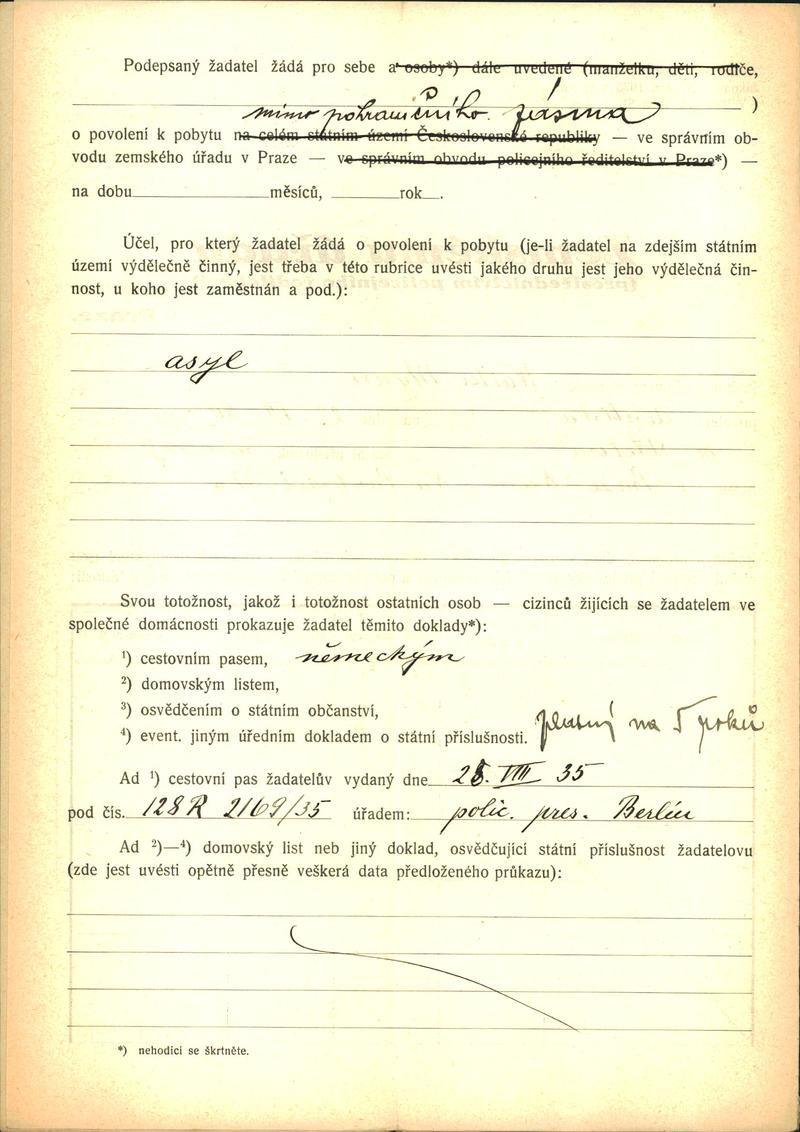 Podepsaný žadatel žádá pro sebe a osoby*) dále uvedené (manželku, děti, rodiče,
)
mimo pohraničního pásma
o povolení k pobytu na celém státním území Československé republiky — ve správním ob-
vodu zemského úřadu v Praze — ve správním obvodu policejního ředitelství v Praze*) —
na dobu měsíců, rok .
Účel, pro který žadatel žádá o povolení k pobytu (je-li žadatel na zdejším státním
území výdělečně činný, jest třeba v této rubrice uvésti jakého druhu jest jeho výdělečná čin-
nost, u koho jest zaměstnán a pod.):
asyl
Svou totožnost, jakož i totožnost ostatních osob — cizinců žijících se žadatelem ve
společné domácnosti prokazuje žadatel těmito doklady*):
¹) cestovním pasem, německým
²) domovským listem,
³) osvědčením o státním občanství,
⁴) event. jiným úředním dokladem o státní příslušnosti. platný na 5 roků
Ad ¹) cestovní pas žadatelův vydaný dne 28. VIII 35
pod čís. 128R 2169/35 úřadem: polic. pres. Berlín
Ad ²)—⁴) domovský list neb jiný doklad, osvědčující státní příslušnost žadatelovu
(zde jest uvésti opětně přesně veškerá data předloženého průkazu):
*) nehodící se škrtněte.